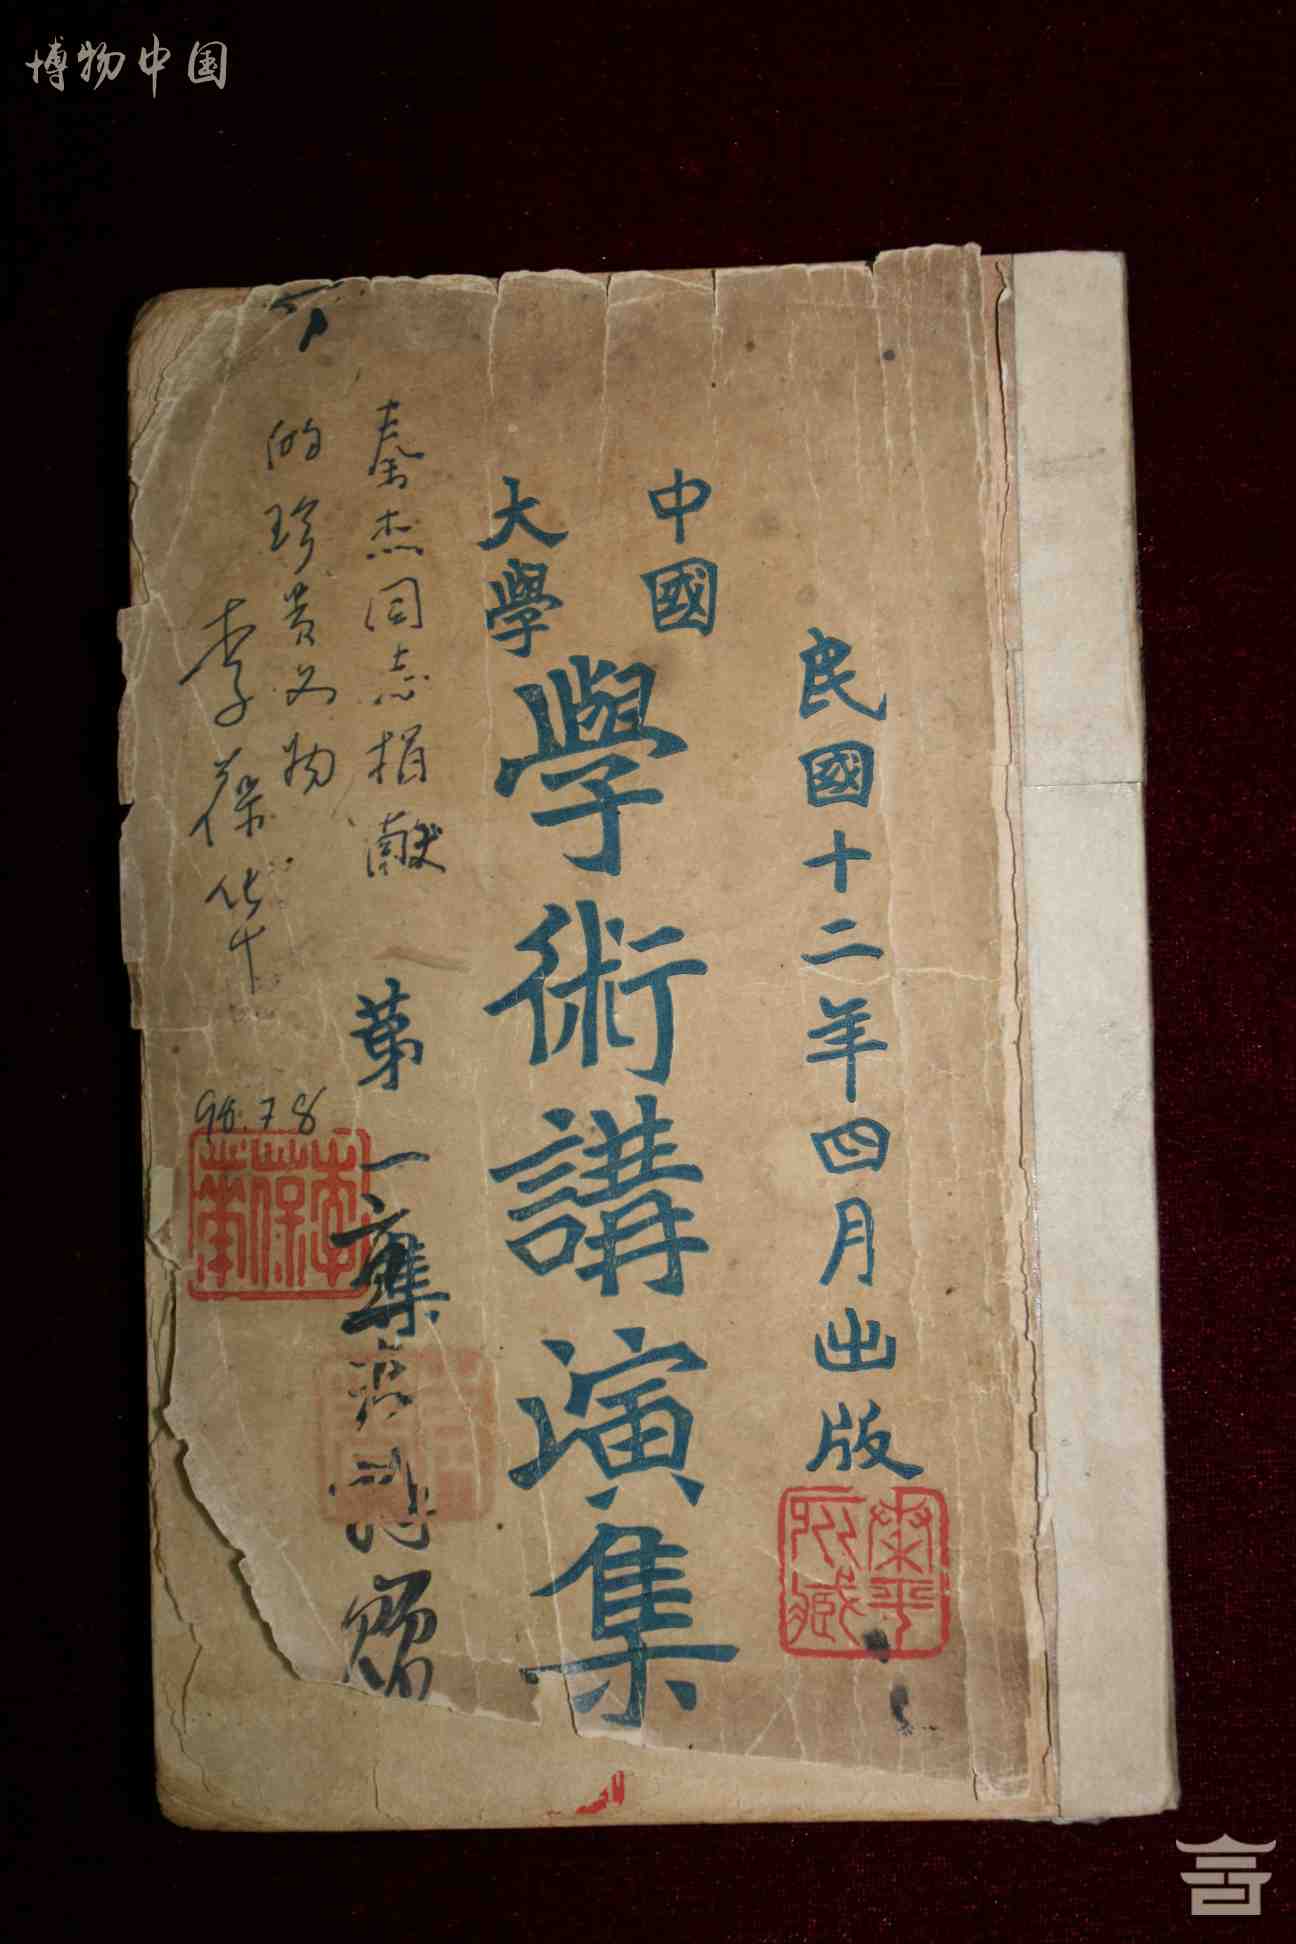 博物中国
民國十二年四月出版
中國
大學
學術講演集
第一集
秦杰同志捐献
的珍贵文物
李葆华
98.7.8
李葆華